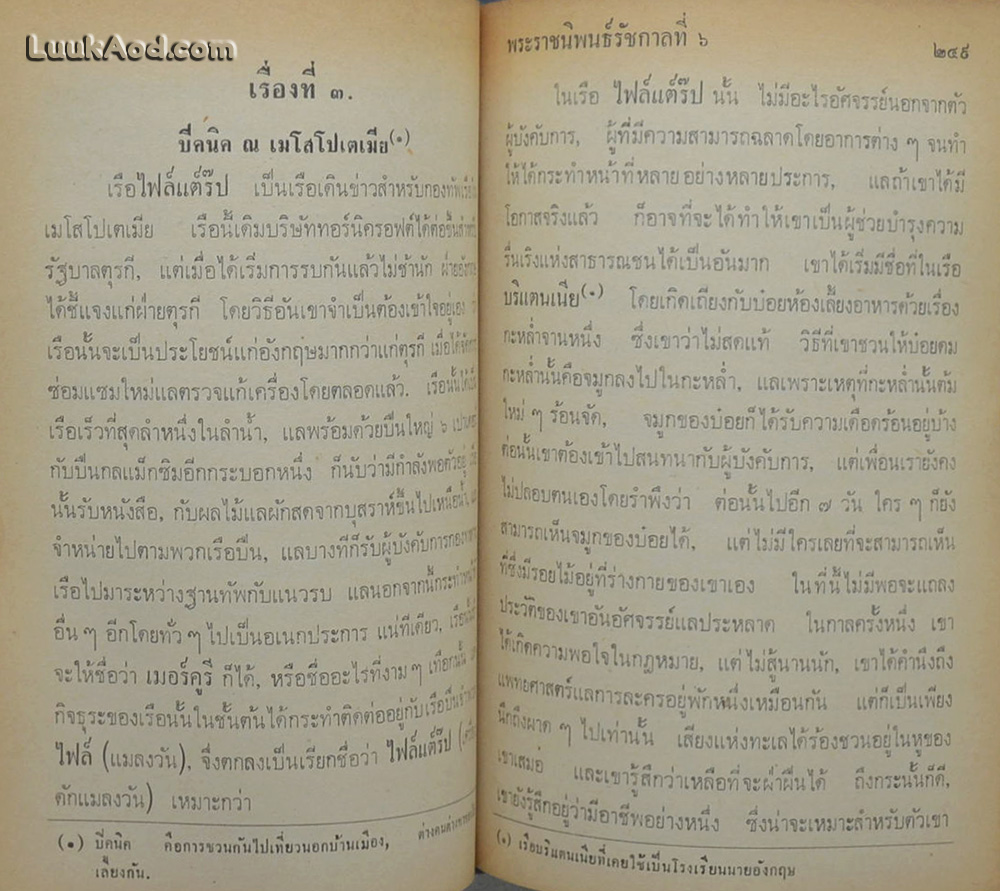 LuukAod.com
เรื่องที่ ๓.
ปี๊คนิค ณ เมโสโปเตเมีย(๑)
เรือไฟล์แต๊รป เป็นเรือเดินข่าวสำหรับกองทัพเรือใน
เมโสโปเตเมีย เรือนี้เดิมบริษัททอร์นิครอฟต์ได้ต่อขึ้นสำหรับ
รัฐบาลตุรกี, แต่เมื่อได้เริ่มการรบกันแล้วไม่ช้านัก ฝ่ายอังกฤษ
ได้ชี้แจงแก่ฝ่ายตุรกี โดยวิธีอันเขาจำเป็นต้องเข้าใจอยู่เอง ว่า
เรือนั้นจะเป็นประโยชน์แก่อังกฤษมากกว่าแก่ตุรกี เมื่อได้จัดการ
ซ่อมแซมใหม่แลตรวจแก้เครื่องโดยตลอดแล้ว. เรือนั้นได้เป็น
เรือเร็วที่สุดลำหนึ่งในลำน้ำ, แลพร้อมด้วยปืนใหญ่ ๖ ปอนด์
กับปืนกลแม็กซิมอีกกระบอกหนึ่ง ก็นับว่ามีกำลังพอตัวอยู่
นั้นรับหนังสือ, กับผลไม้แลผักสดจากบุสราห์ขึ้นไปเหนือน้ำ,
จำหน่ายไปตามพวกเรือปืน, แลบางทีก็รับผู้บังคับการกองทหาร
เรือไปมาระหว่างฐานทัพกับแนวรบ แลนอกจากนี้กระทำหน้าที่
อื่น ๆ อีกโดยทั่ว ๆ ไปเป็นอเนกประการ แน่ทีเดียว, เรือนั้น
จะให้ชื่อว่า เมอร์คูรี ก็ได้, หรือชื่ออะไรที่งาม ๆ เทือกนั้น
กิจธุระของเรือนั้นในชั้นต้นได้กระทำติดต่ออยู่กับเรือปืนจำพวก
ไฟล์ (แมลงวัน), จึงตกลงเป็นเรียกชื่อว่า ไฟล์แต๊รป (เครื่อง
ดักแมลงวัน) เหมาะกว่า
(๑) ปี๊คนิค คือการชวนกันไปเที่ยวนอกบ้านเมือง, ต่างคนต่าง
เลี้ยงกัน.
พระราชนิพนธ์รัชกาลที่ ๖
๒๔๙
ในเรือ ไฟล์แต๊รป นั้น ไม่มีอะไรอัศจรรย์นอกจากตัว
ผู้บังคับการ, ผู้ที่มีความสามารถฉลาดโดยอาการต่าง ๆ จนทำ
ให้ได้กระทำหน้าที่หลายอย่างหลายประการ, แลถ้าเขาได้มี
โอกาสจริงแล้ว ก็อาจที่จะได้ทำให้เขาเป็นผู้ช่วยบำรุงความ
รื่นเริงแห่งสาธารณชนได้เป็นอันมาก เขาได้เริ่มมีชื่อที่ในเรือ
บริแตนเนีย(๑) โดยเกิดเถียงกับบ๋อยห้องเลี้ยงอาหารด้วยเรื่อง
กะหล่ำจานหนึ่ง ซึ่งเขาว่าไม่สดแท้ วิธีที่เขาชวนให้บ๋อยดม
กะหล่ำนั้นคือจมูกลงไปในกะหล่ำ, แลเพราะเหตุที่กะหล่ำนั้นต้ม
ใหม่ ๆ ร้อนจัด, จมูกของบ๋อยก็ได้รับความเดือดร้อนอยู่บ้าง
ต่อนั้นเขาต้องเข้าไปสนทนากับผู้บังคับการ, แต่เพื่อนเรายังคง
ไม่ปลอบตนเองโดยรำพึงว่า ต่อนั้นไปอีก ๗ วัน ใคร ๆ ก็ยัง
สามารถเห็นจมูกของบ๋อยได้, แต่ไม่มีใครเลยที่จะสามารถเห็น
ที่ซึ่งมีรอยไม้อยู่ที่ร่างกายของเขาเอง ในที่นี้ไม่มีพอจะแถลง
ประวัติของเขาอันอัศจรรย์แลประหลาด ในกาลครั้งหนึ่ง เขา
ได้เกิดความพอใจในกฎหมาย, แต่ไม่สู้นานนัก, เขาได้คำนึงถึง
แพทยศาสตร์แลการละครอยู่พักหนึ่งเหมือนกัน แต่ก็เป็นเพียง
นึกถึงผาด ๆ ไปเท่านั้น เสียงแห่งทะเลได้ร้องชวนอยู่ในหูของ
เขาเสมอ และเขารู้สึกว่าเหลือที่จะฝ่าฝืนได้ ถึงกระนั้นก็ดี,
เขายังรู้สึกอยู่ว่ามีอาชีพอย่างหนึ่ง ซึ่งน่าจะเหมาะสำหรับตัวเขา
(๑) เรือบริแตนเนียที่เคยใช้เป็นโรงเรียนนายอังกฤษ